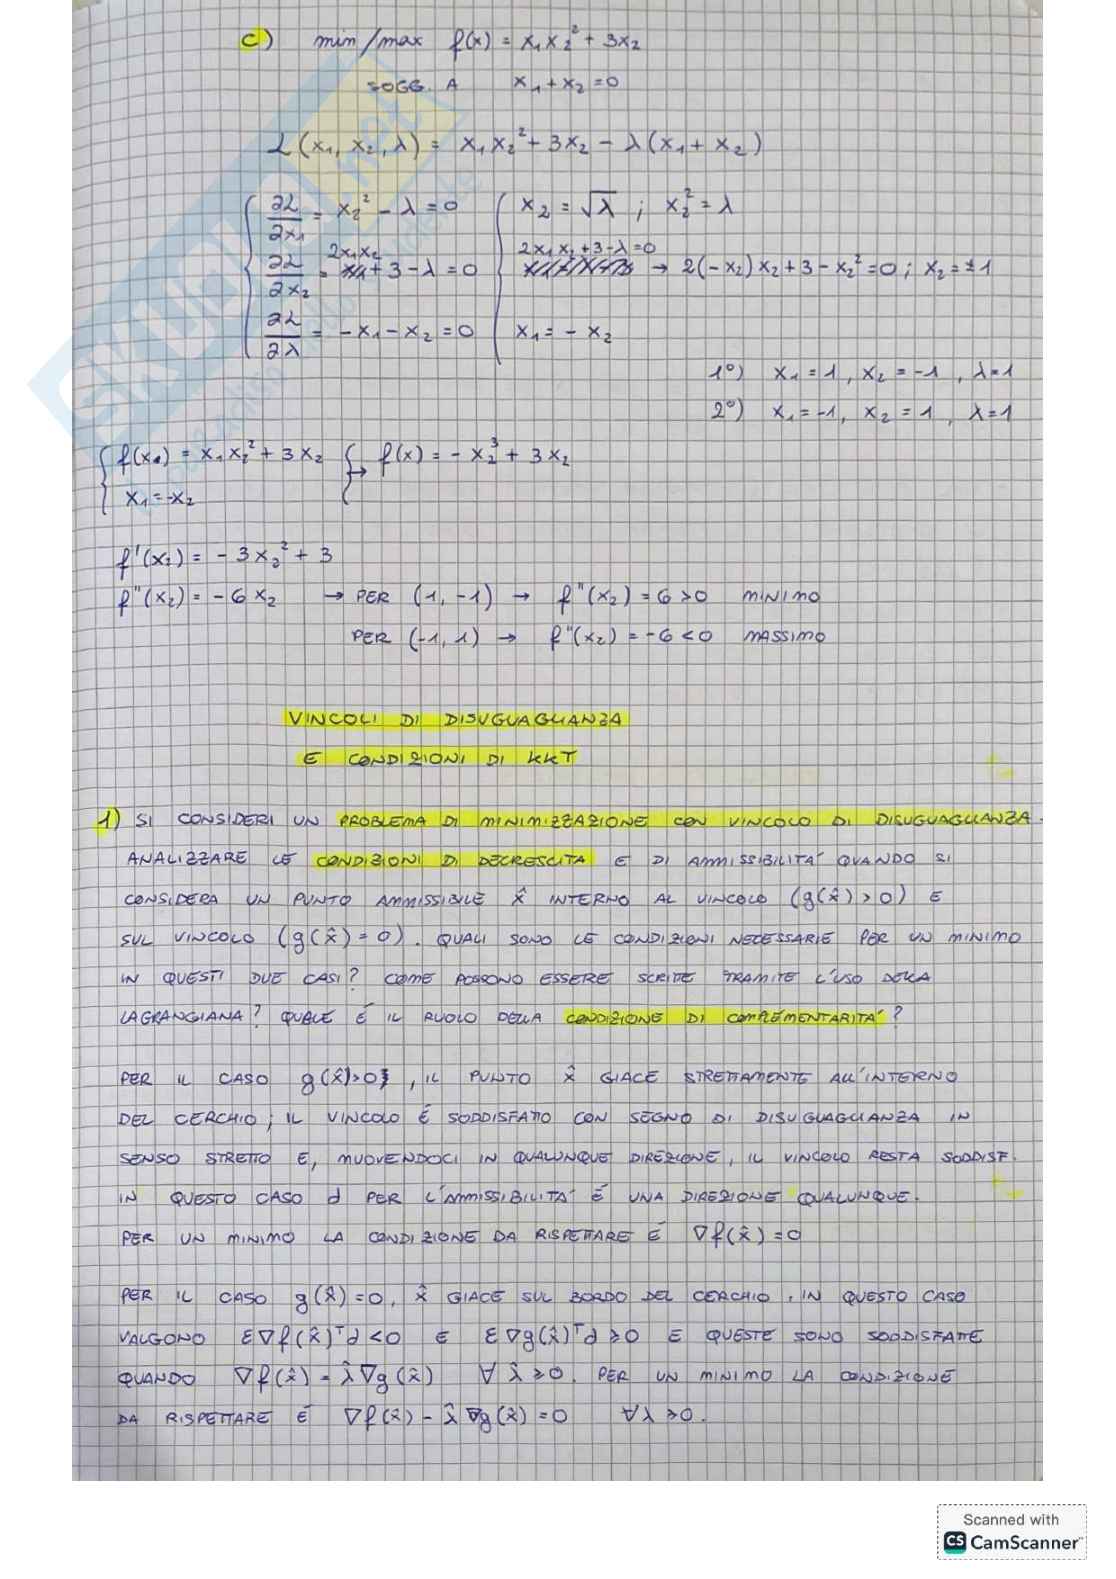 c) min/max f(x) = x₁x₂² + 3x₂
SOGG. A x₁+x₂=0
L(x₁, x₂, λ) = x₁x₂² + 3x₂ - λ(x₁+x₂)
∂L/∂x₁ = x₂² - λ = 0 x₂ = √λ ; x₂² = λ
∂L/∂x₂ = 2x₁x₂ + 3 - λ = 0 2x₁x₂ + 3 - λ = 0 → 2(-x₂)x₂ + 3 - x₂² = 0 ; x₂ = ±1
∂L/∂λ = -x₁ - x₂ = 0 x₁ = - x₂
1°) x₁ = 1 , x₂ = -1 , λ=1
2°) x₁ = -1, x₂ = 1 , λ=1
f(x₁) = x₁x₂² + 3x₂ → f(x) = - x₂³ + 3x₂
x₁ = -x₂
f'(x₂) = - 3x₂² + 3
f"(x₂) = - 6x₂ → PER (1, -1) → f"(x₂) = 6 > 0 MINIMO
PER (-1, 1) → f"(x₂) = -6 < 0 MASSIMO
VINCOLI DI DISUGUAGLIANZA
E CONDIZIONI DI KKT
1) SI CONSIDERI UN PROBLEMA DI MINIMIZZAZIONE CON VINCOLO DI DISUGUAGLIANZA.
ANALIZZARE LE CONDIZIONI DI DECRESCITA E DI AMMISSIBILITA' QUANDO SI
CONSIDERA UN PUNTO AMMISSIBILE x̂ INTERNO AL VINCOLO (g(x̂) > 0) E
SUL VINCOLO (g(x̂) = 0). QUALI SONO LE CONDIZIONI NECESSARIE PER UN MINIMO
IN QUESTI DUE CASI? COME POSSONO ESSERE SCRITTE TRAMITE L'USO DELLA
LAGRANGIANA? QUALE É IL RUOLO DELLA CONDIZIONE DI COMPLEMENTARITA'?
PER IL CASO g(x̂)>0}, IL PUNTO x̂ GIACE STRETTAMENTE ALL'INTERNO
DEL CERCHIO; IL VINCOLO É SODDISFATTO CON SEGNO DI DISUGUAGLIANZA IN
SENSO STRETTO E, MUOVENDOCI IN QUALUNQUE DIREZIONE, IL VINCOLO RESTA SODDISF.
IN QUESTO CASO d PER L'AMMISSIBILITA' É UNA DIREZIONE QUALUNQUE.
PER UN MINIMO LA CONDIZIONE DA RISPETTARE É ∇f(x̂) = 0
PER IL CASO g(x̂) = 0, x̂ GIACE SUL BORDO DEL CERCHIO. IN QUESTO CASO
VALGONO ε∇f(x̂)ᵀd < 0 E ε∇g(x̂)ᵀd ≥ 0 E QUESTE SONO SODDISFATTE
QUANDO ∇f(x̂) = λ̂∇g(x̂) ∀ λ̂ ≥ 0. PER UN MINIMO LA CONDIZIONE
DA RISPETTARE É ∇f(x̂) - λ̂∇g(x̂) = 0 ∀λ ≥ 0.
Scanned with
CS CamScanner
skuola.net